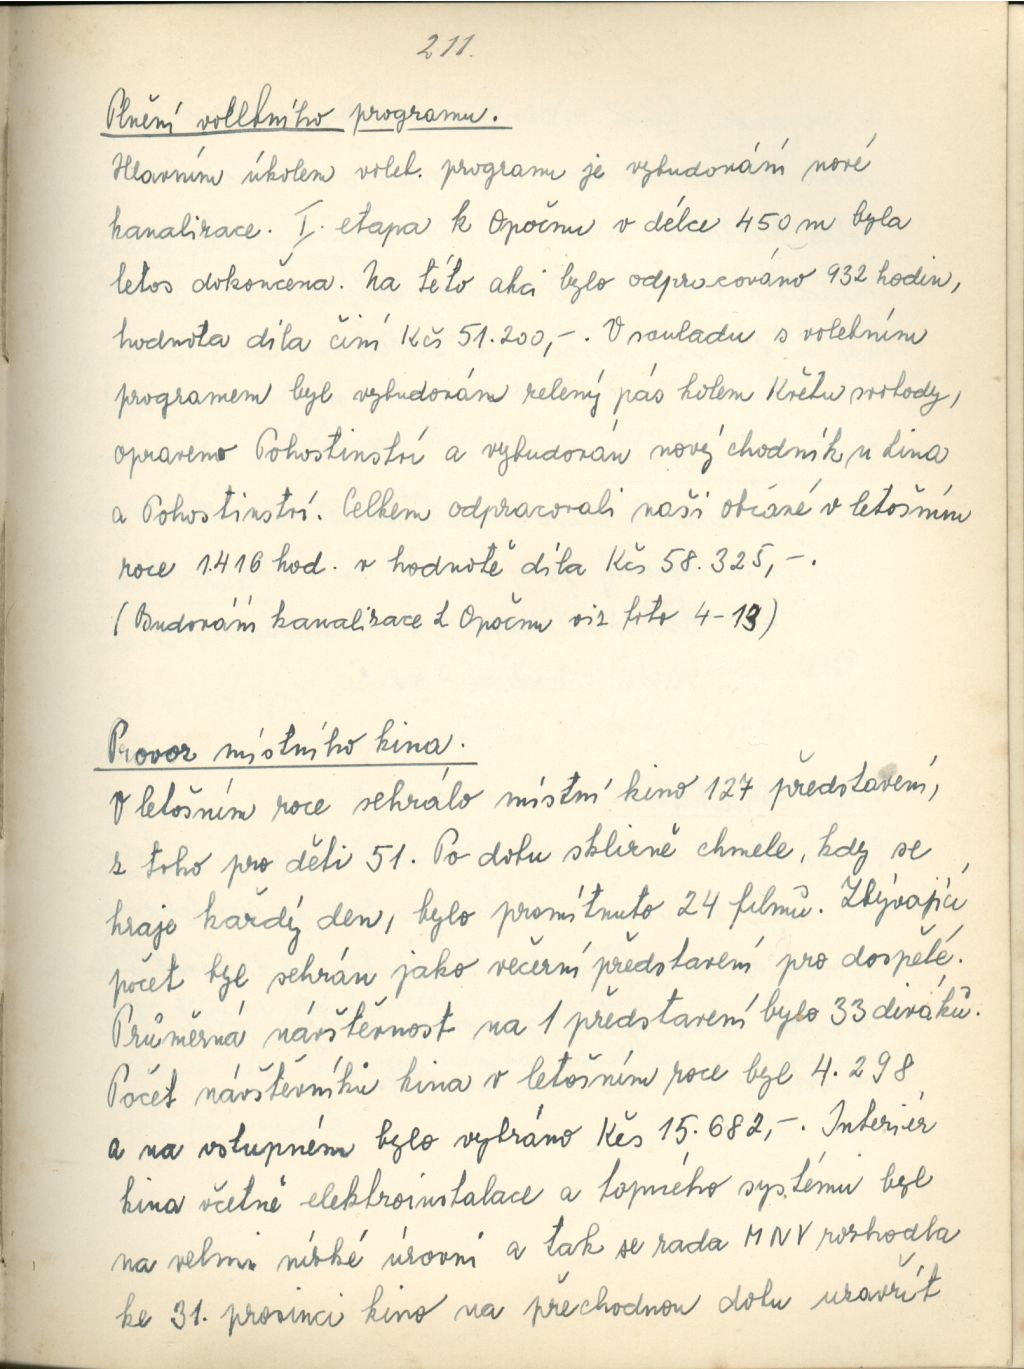 211.
Plnění volebního programu.
Hlavním úkolem voleb. programu je vybudování nové
kanalizace. I. etapa k Opočnu v délce 450 m byla
letos dokončena. Na této akci bylo odpracováno 932 hodin,
hodnota díla činí Kčs 51.200,-. V souladu s volebním
programem byl vybudován zelený pás kolem Květu svobody,
opraveno Pohostinství a vybudován nový chodník u kina
a Pohostinství. Celkem odpracovali naši občané v letošním
roce 1.416 hod. v hodnotě díla Kčs 58.325,-.
(Budování kanalizace k Opočnu viz foto 4-13)
Provoz místního kina.
V letošním roce sehrálo místní kino 127 představení,
z toho pro děti 51. Po dobu sklizně chmele, kdy se
hraje každý den, bylo promítnuto 24 filmů. Zbývající
počet byl sehrán jako večerní představení pro dospělé.
Průměrná návštěvnost na 1 představení bylo 33 diváků.
Počet návštěvníků kina v letošním roce byl 4.298
a na vstupném bylo vybráno Kčs 15.682,-. Interiér
kina včetně elektroinstalace a topného systému byl
na velmi nízké úrovni a tak se rada MNV rozhodla
ke 31. prosinci kino na přechodnou dobu uzavřít